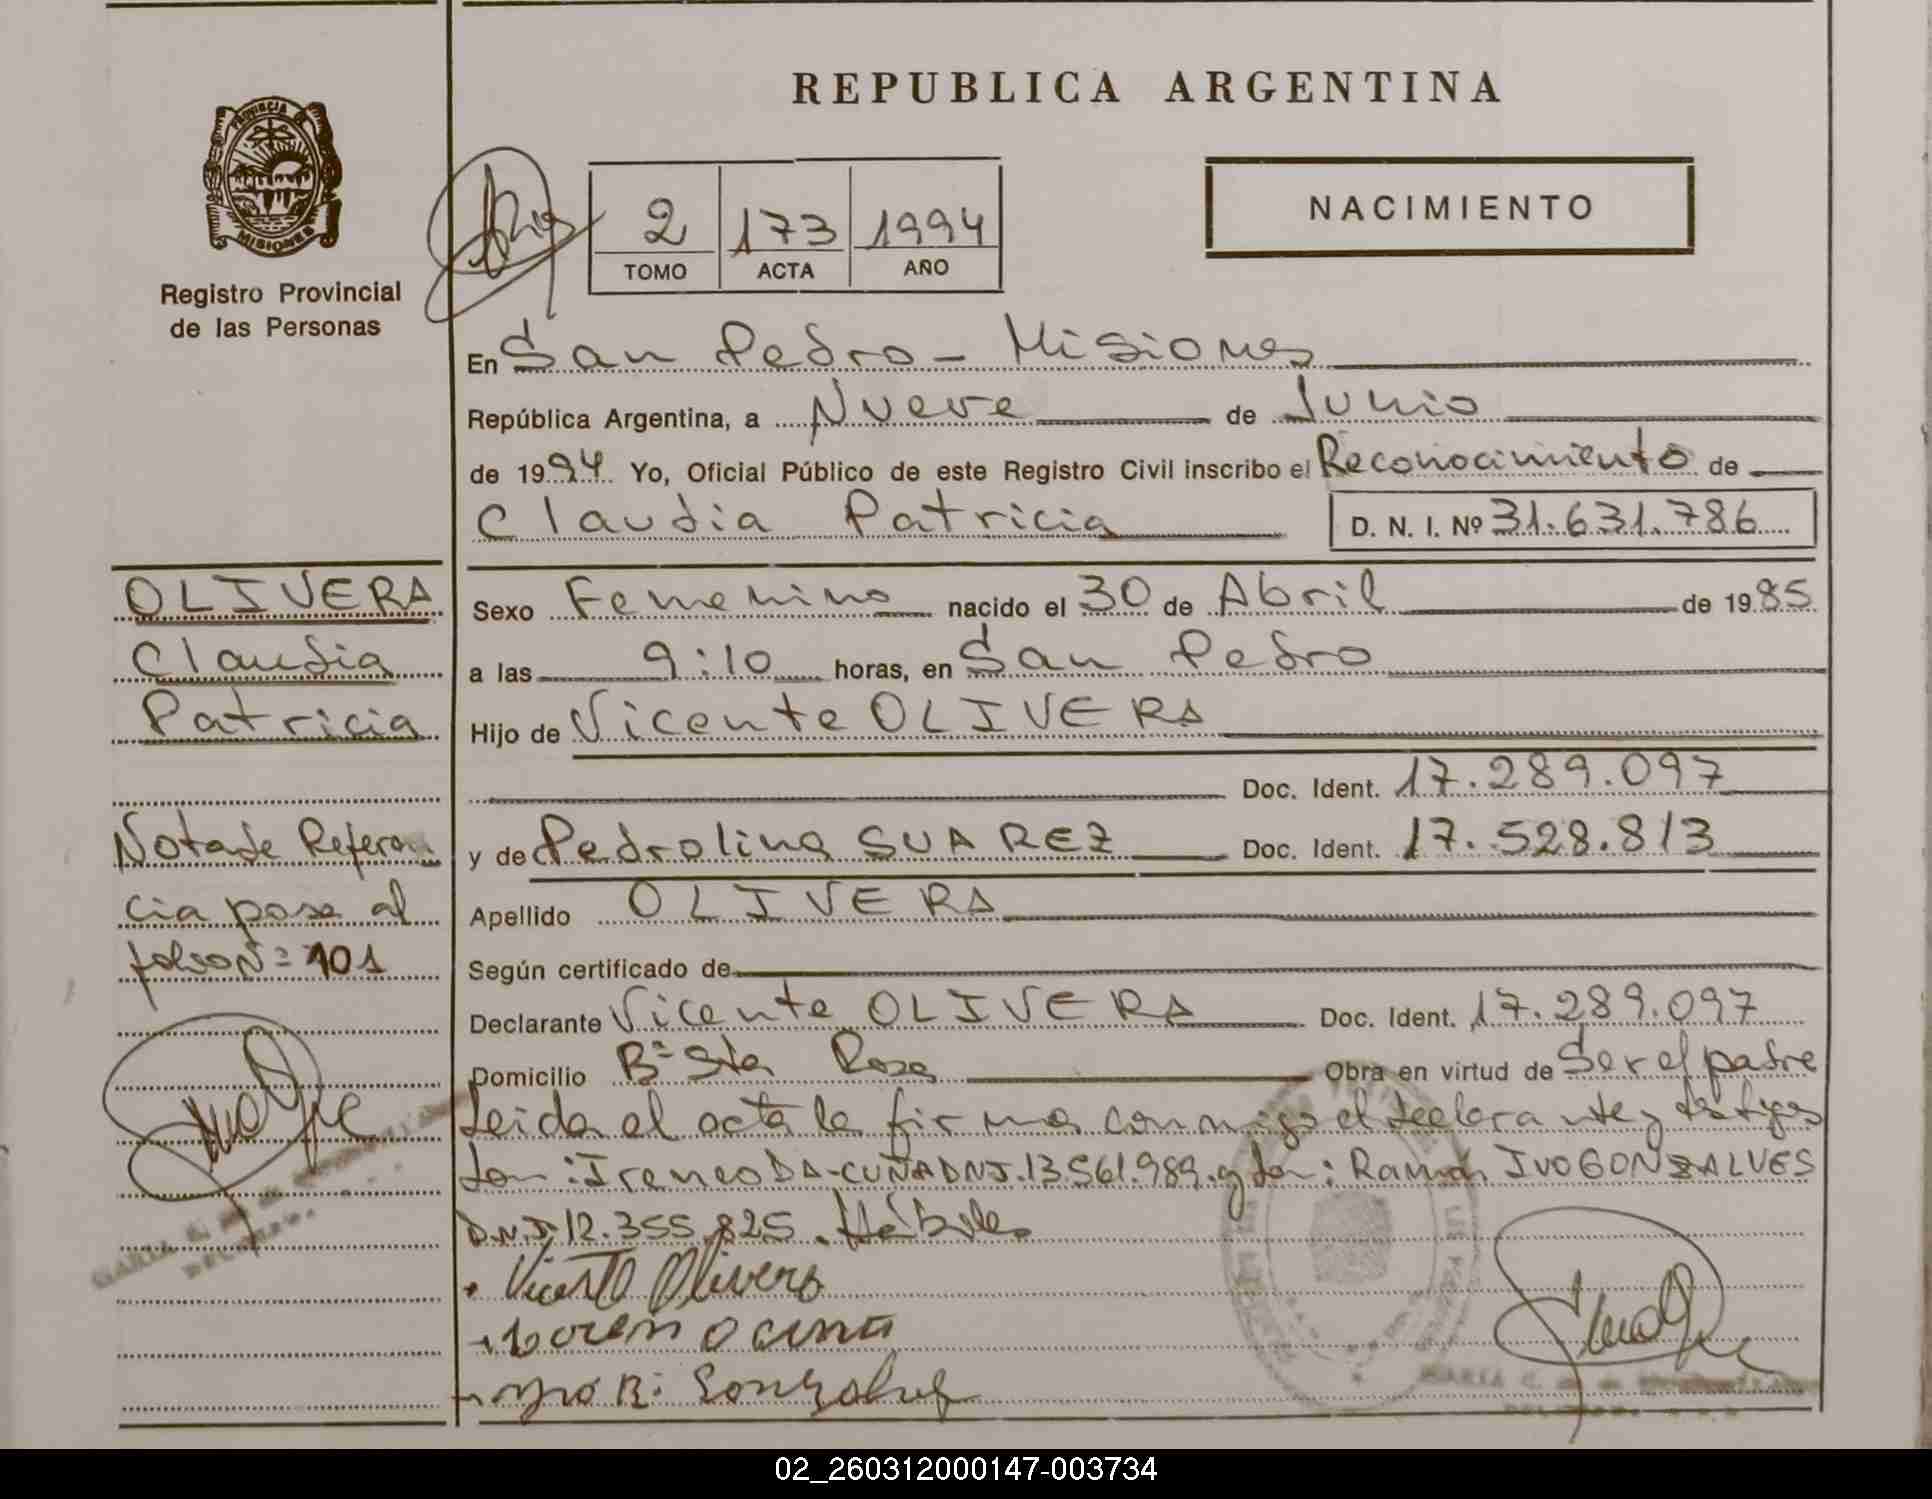 REPUBLICA ARGENTINA
PROVINCIA DE
MISIONES
Registro Provincial
de las Personas
2 173 1994
TOMO ACTA AÑO
NACIMIENTO
En San Pedro - Misiones
República Argentina, a Nueve de Junio
de 1994 Yo, Oficial Público de este Registro Civil inscribo el Reconocimiento de
Claudia Patricia D. N. I. Nº 31.631.786
OLIVERA
Claudia
Patricia
Nota de Referen
cia pase al
folio Nº 101
Sexo Femenino nacido el 30 de Abril de 1985
a las 9:10 horas, en San Pedro
Hijo de Vicente OLIVERA
Doc. Ident. 17.289.097
y de Pedrolina SUAREZ Doc. Ident. 17.528.813
Apellido OLIVERA
Según certificado de
Declarante Vicente OLIVERA Doc. Ident. 17.289.097
Domicilio Bº Sta Rosa Obra en virtud de Ser el padre
Leida el acta la firma conmigo el declarante y testigos
don: Ireneo DA-CUÑA DNI.13.561.989. y don: Ramón IVO GONZALVES
D.N.I 12.355.825. Hábiles
Vicente Olivera
MARIA C.
02_260312000147-003734